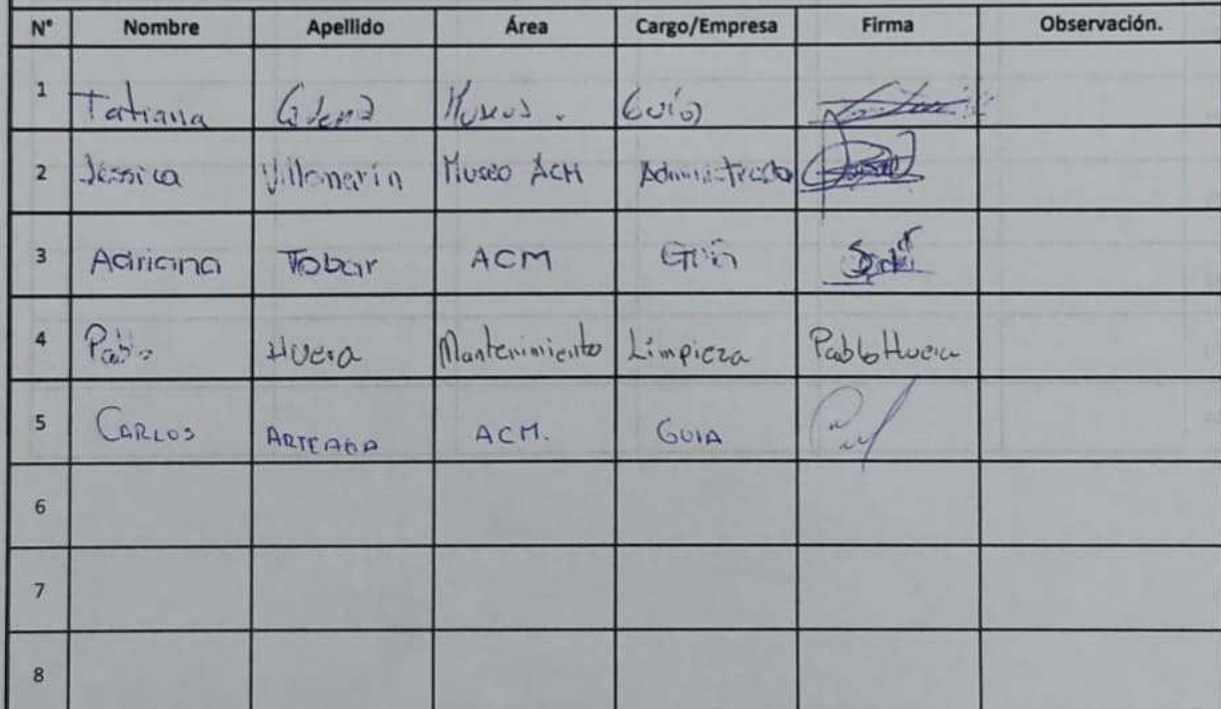 N° Nombre Apellido Área Cargo/Empresa Firma Observación.
1 Tatiana Guía
2 Jessica Villamarín Museo ACM
3 Adriana Tobar ACM Guía
4 Pablo Huera Mantenimiento Limpieza Pablo Huera
5 CARLOS ARTEAGA ACM. GUIA
6
7
8